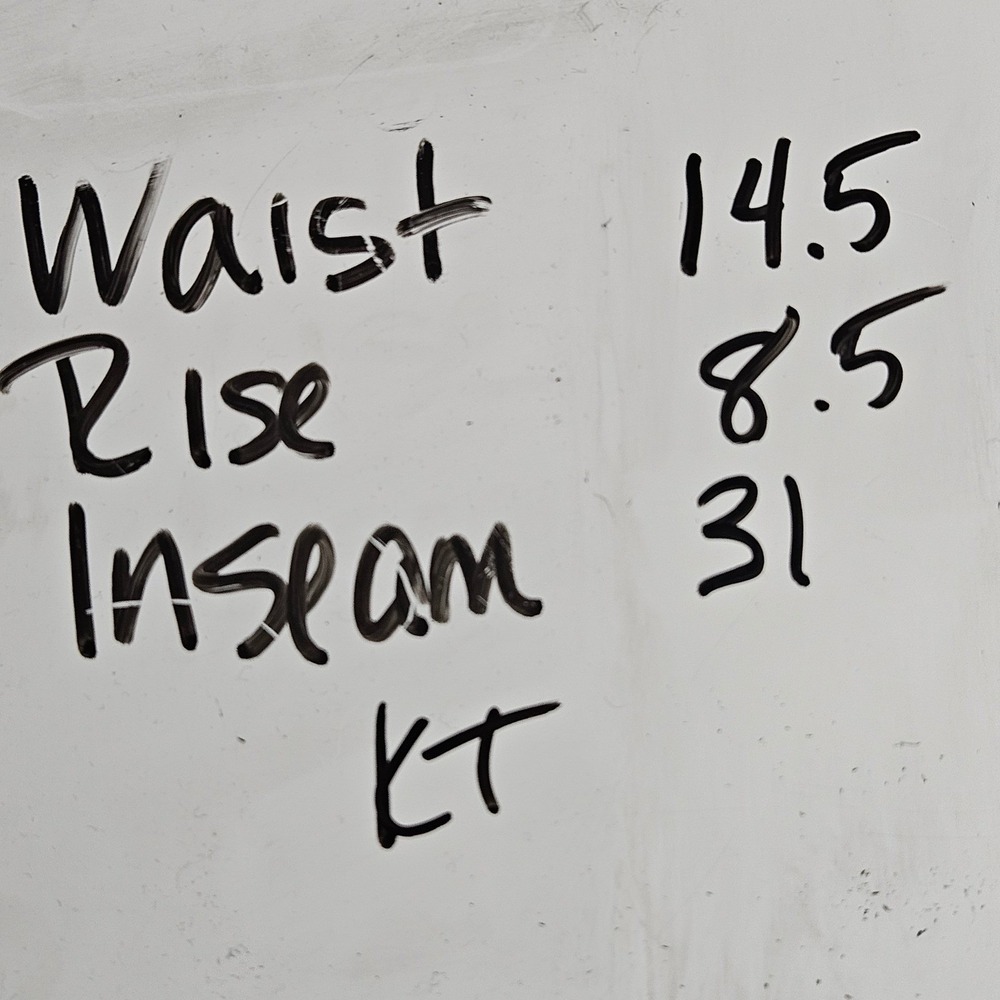 Waist 14.5
Rise 8.5
Inseam 31
KT